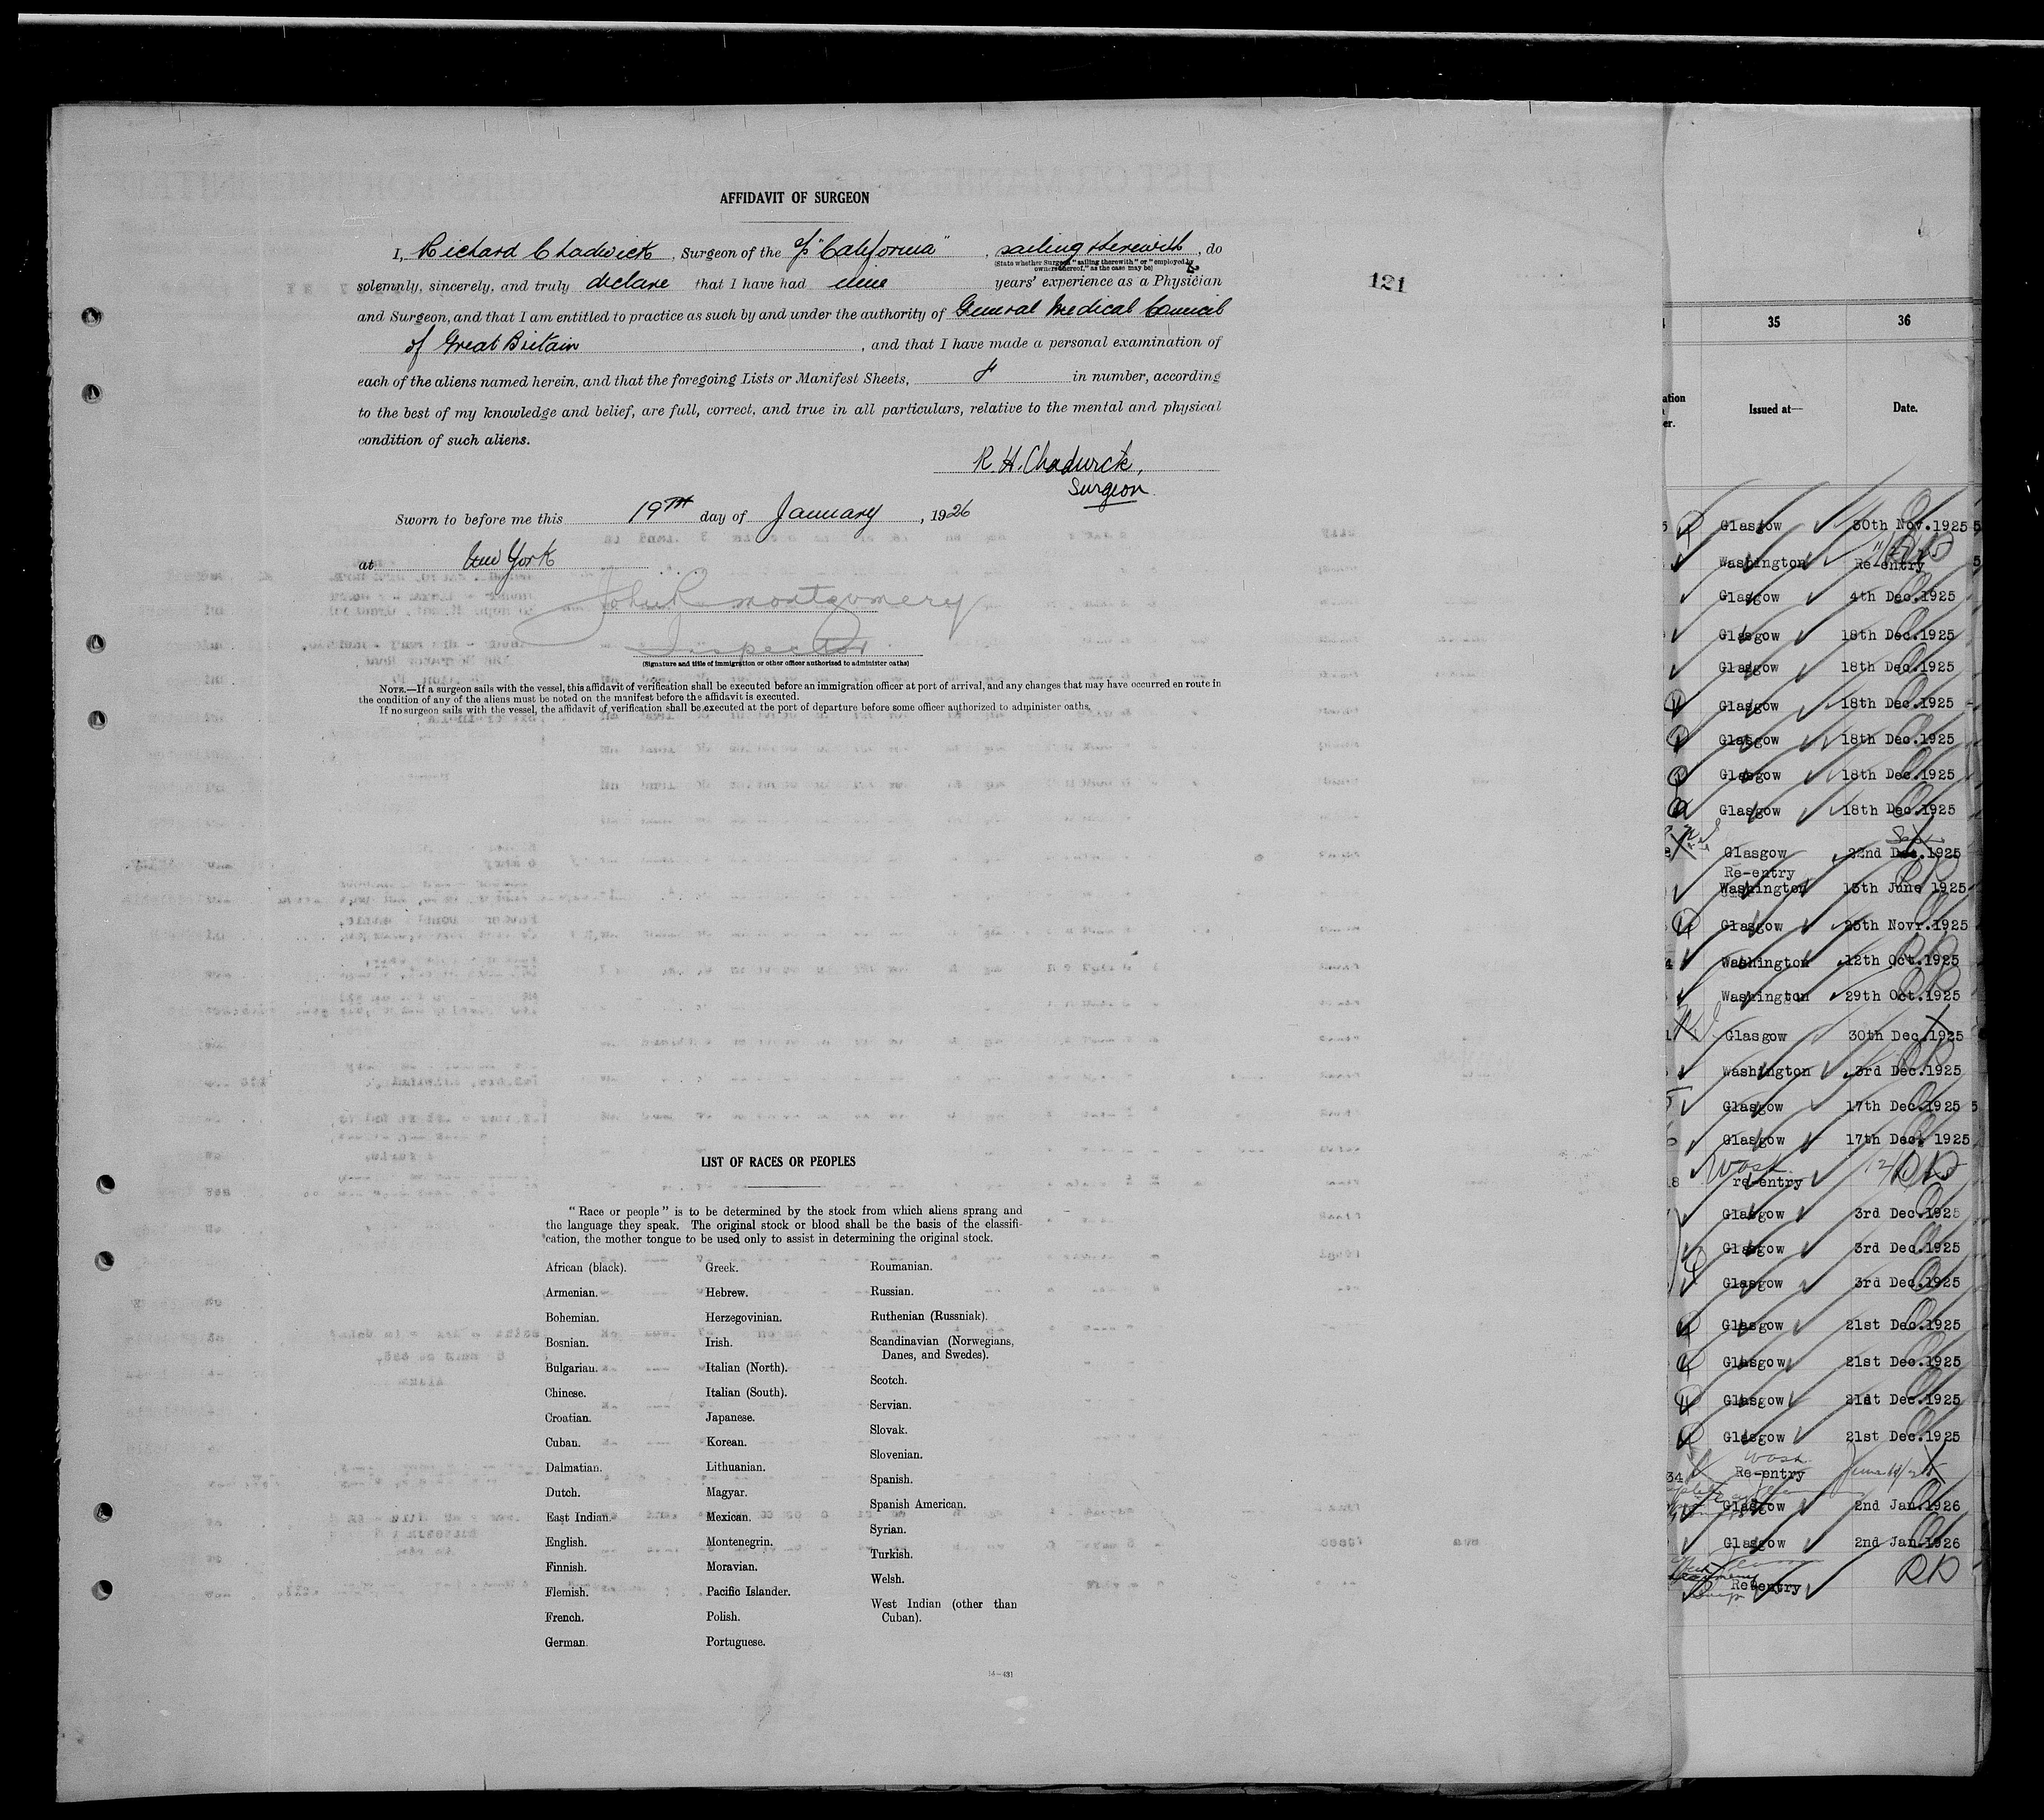 AFFIDAVIT OF SURGEON
I, Richard Chadwick, Surgeon of the S/S "California", sailing therewith, do
(State whether Surgeon "sailing therewith" or "employed by owners thereof," as the case may be)
solemnly, sincerely, and truly declare that I have had nine years' experience as a Physician
and Surgeon, and that I am entitled to practice as such by and under the authority of General Medical Council
of Great Britain, and that I have made a personal examination of
each of the aliens named herein, and that the foregoing Lists or Manifest Sheets, in number, according
to the best of my knowledge and belief, are full, correct, and true in all particulars, relative to the mental and physical
condition of such aliens.
R. H. Chadwick,
Surgeon.
Sworn to before me this 19TH day of January, 1926
at New York
John R Montgomery
Inspector
(Signature and title of immigration or other officer authorized to administer oaths)
NOTE.—If a surgeon sails with the vessel, this affidavit of verification shall be executed before an immigration officer at port of arrival, and any changes that may have occurred en route in
the condition of any of the aliens must be noted on the manifest before the affidavit is executed.
If no surgeon sails with the vessel, the affidavit of verification shall be executed at the port of departure before some officer authorized to administer oaths.
121
LIST OF RACES OR PEOPLES
"Race or people" is to be determined by the stock from which aliens sprang and
the language they speak. The original stock or blood shall be the basis of the classifi-
cation, the mother tongue to be used only to assist in determining the original stock.
African (black).
Armenian.
Bohemian.
Bosnian.
Bulgarian.
Chinese.
Croatian.
Cuban.
Dalmatian.
Dutch.
East Indian.
English.
Finnish.
Flemish.
French.
German.
Greek.
Hebrew.
Herzegovinian.
Irish.
Italian (North).
Italian (South).
Japanese.
Korean.
Lithuanian.
Magyar.
Mexican.
Montenegrin.
Moravian.
Pacific Islander.
Polish.
Portuguese.
Roumanian.
Russian.
Ruthenian (Russniak).
Scandinavian (Norwegians,
Danes, and Swedes).
Scotch.
Servian.
Slovak.
Slovenian.
Spanish.
Spanish American.
Syrian.
Turkish.
Welsh.
West Indian (other than
Cuban).
14—431
35 36
Issued at— Date.
Glasgow 30th Nov.1925
Washington Re-entry
Glasgow 4th Dec.1925
Glasgow 18th Dec.1925
Glasgow 18th Dec.1925
Glasgow 18th Dec.1925
Glasgow 18th Dec.1925
Glasgow 18th Dec.1925
Glasgow 18th Dec.1925
Glasgow 22nd Dec.1925
Re-entry
Washington 13th June 1925
Glasgow 25th Novr.1925
Washington 12th Oct.1925
Washington 29th Oct.1925
Glasgow 30th Dec.1925
Washington 3rd Dec.1925
Glasgow 17th Dec.1925
Glasgow 17th Dec. 1925
Wash.
re-entry
Glasgow 3rd Dec.1925
Glasgow 3rd Dec.1925
Glasgow 3rd Dec.1925
Glasgow 21st Dec.1925
Glasgow 21st Dec.1925
Glasgow 21st Dec.1925
Glasgow 21st Dec.1925
Wash.
Re-entry
Glasgow 2nd Jan.1926
Glasgow 2nd Jan.1926
Re-entry